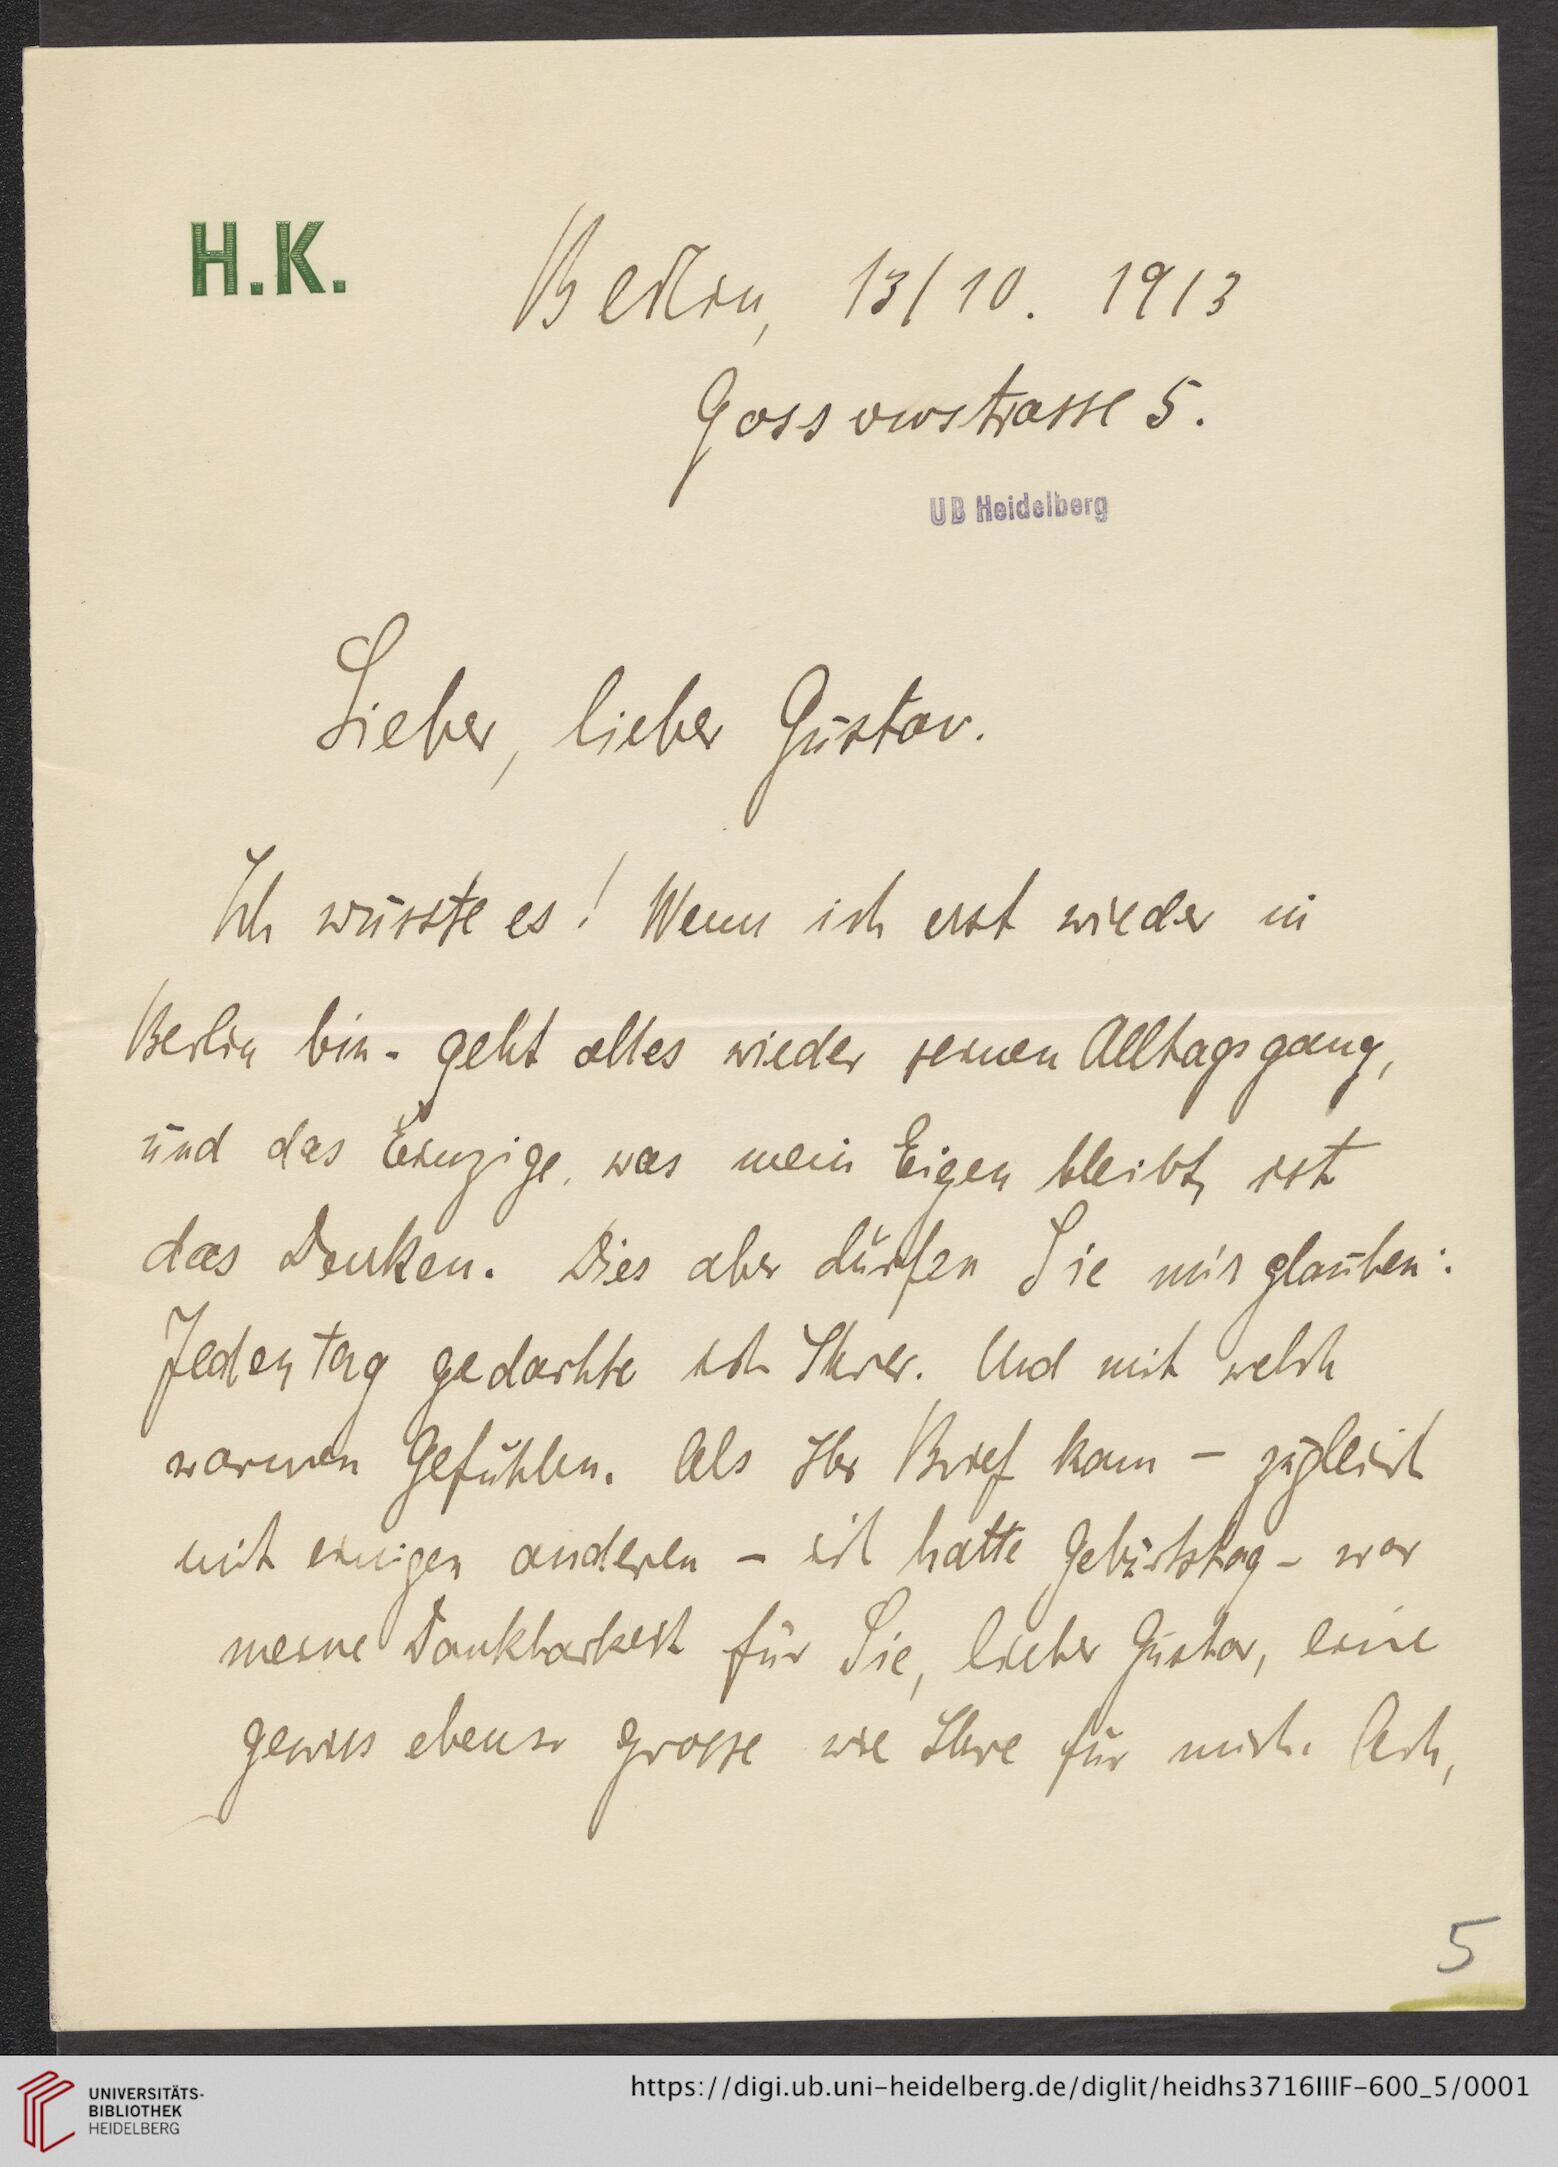 H.K.
Berlin, 13/10. 1913
Gossowstrasse 5.
UB Heidelberg
Lieber, lieber Gustav.
Ich wusste es! Wenn ich erst wieder in
Berlin bin - geht alles wieder seinen Alltagsgang,
und das Einzige, was mein Eigen bleibt, ist
das Denken. Dies aber dürfen Sie mir glauben:
Jeden Tag gedachte ich Ihrer. Und mit welch
warmen Gefühlen. Als Ihr Brief kam - zugleich
mit einigen anderen - ich hatte Geburtstag - war
meine Dankbarkeit für Sie, lieber Gustav, eine
gewiss ebenso grosse wie Ihre für mich. Ach,
5
UNIVERSITÄTS-
BIBLIOTHEK
HEIDELBERG
https://digi.ub.uni-heidelberg.de/diglit/heidhs3716IIIF-600_5/0001